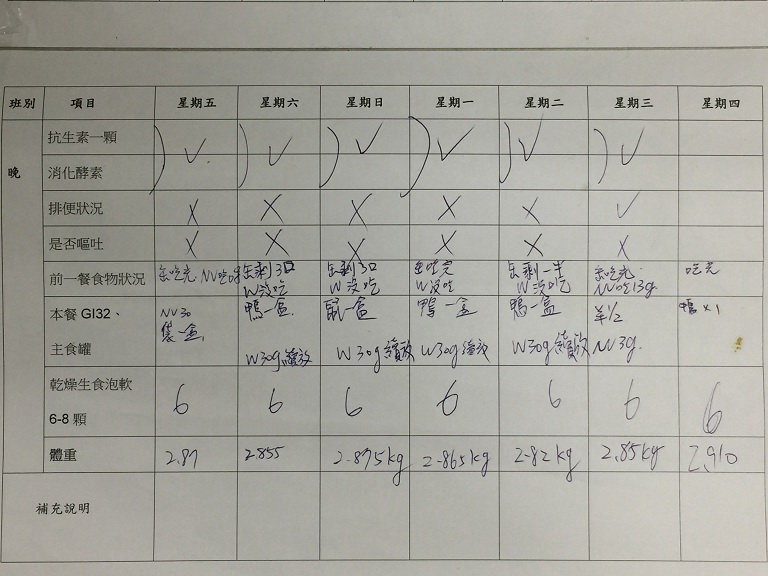 班別 項目 星期五 星期六 星期日 星期一 星期二 星期三 星期四
晚
抗生素一顆 V V V V V V
消化酵素
排便狀況 X X X X X V
是否嘔吐 X X X X X X
前一餐食物狀況 吃光 剩3口 剩3口 吃完 剩一半 吃光 吃光
W沒吃 W沒吃 W沒吃 W沒吃 吃13g
本餐 GI32、 鴨一盒 鼠一盒 鴨一盒 鴨一盒 羊1/2 鴨x1
一盒
主食罐 W30g續放 W30g續放 W30g續放 W30g續放
乾燥生食泡軟 6 6 6 6 6 6 6
6-8 顆
體重 2.87 2.855 2.875kg 2.865kg 2.82kg 2.85kg 2.910
補充說明